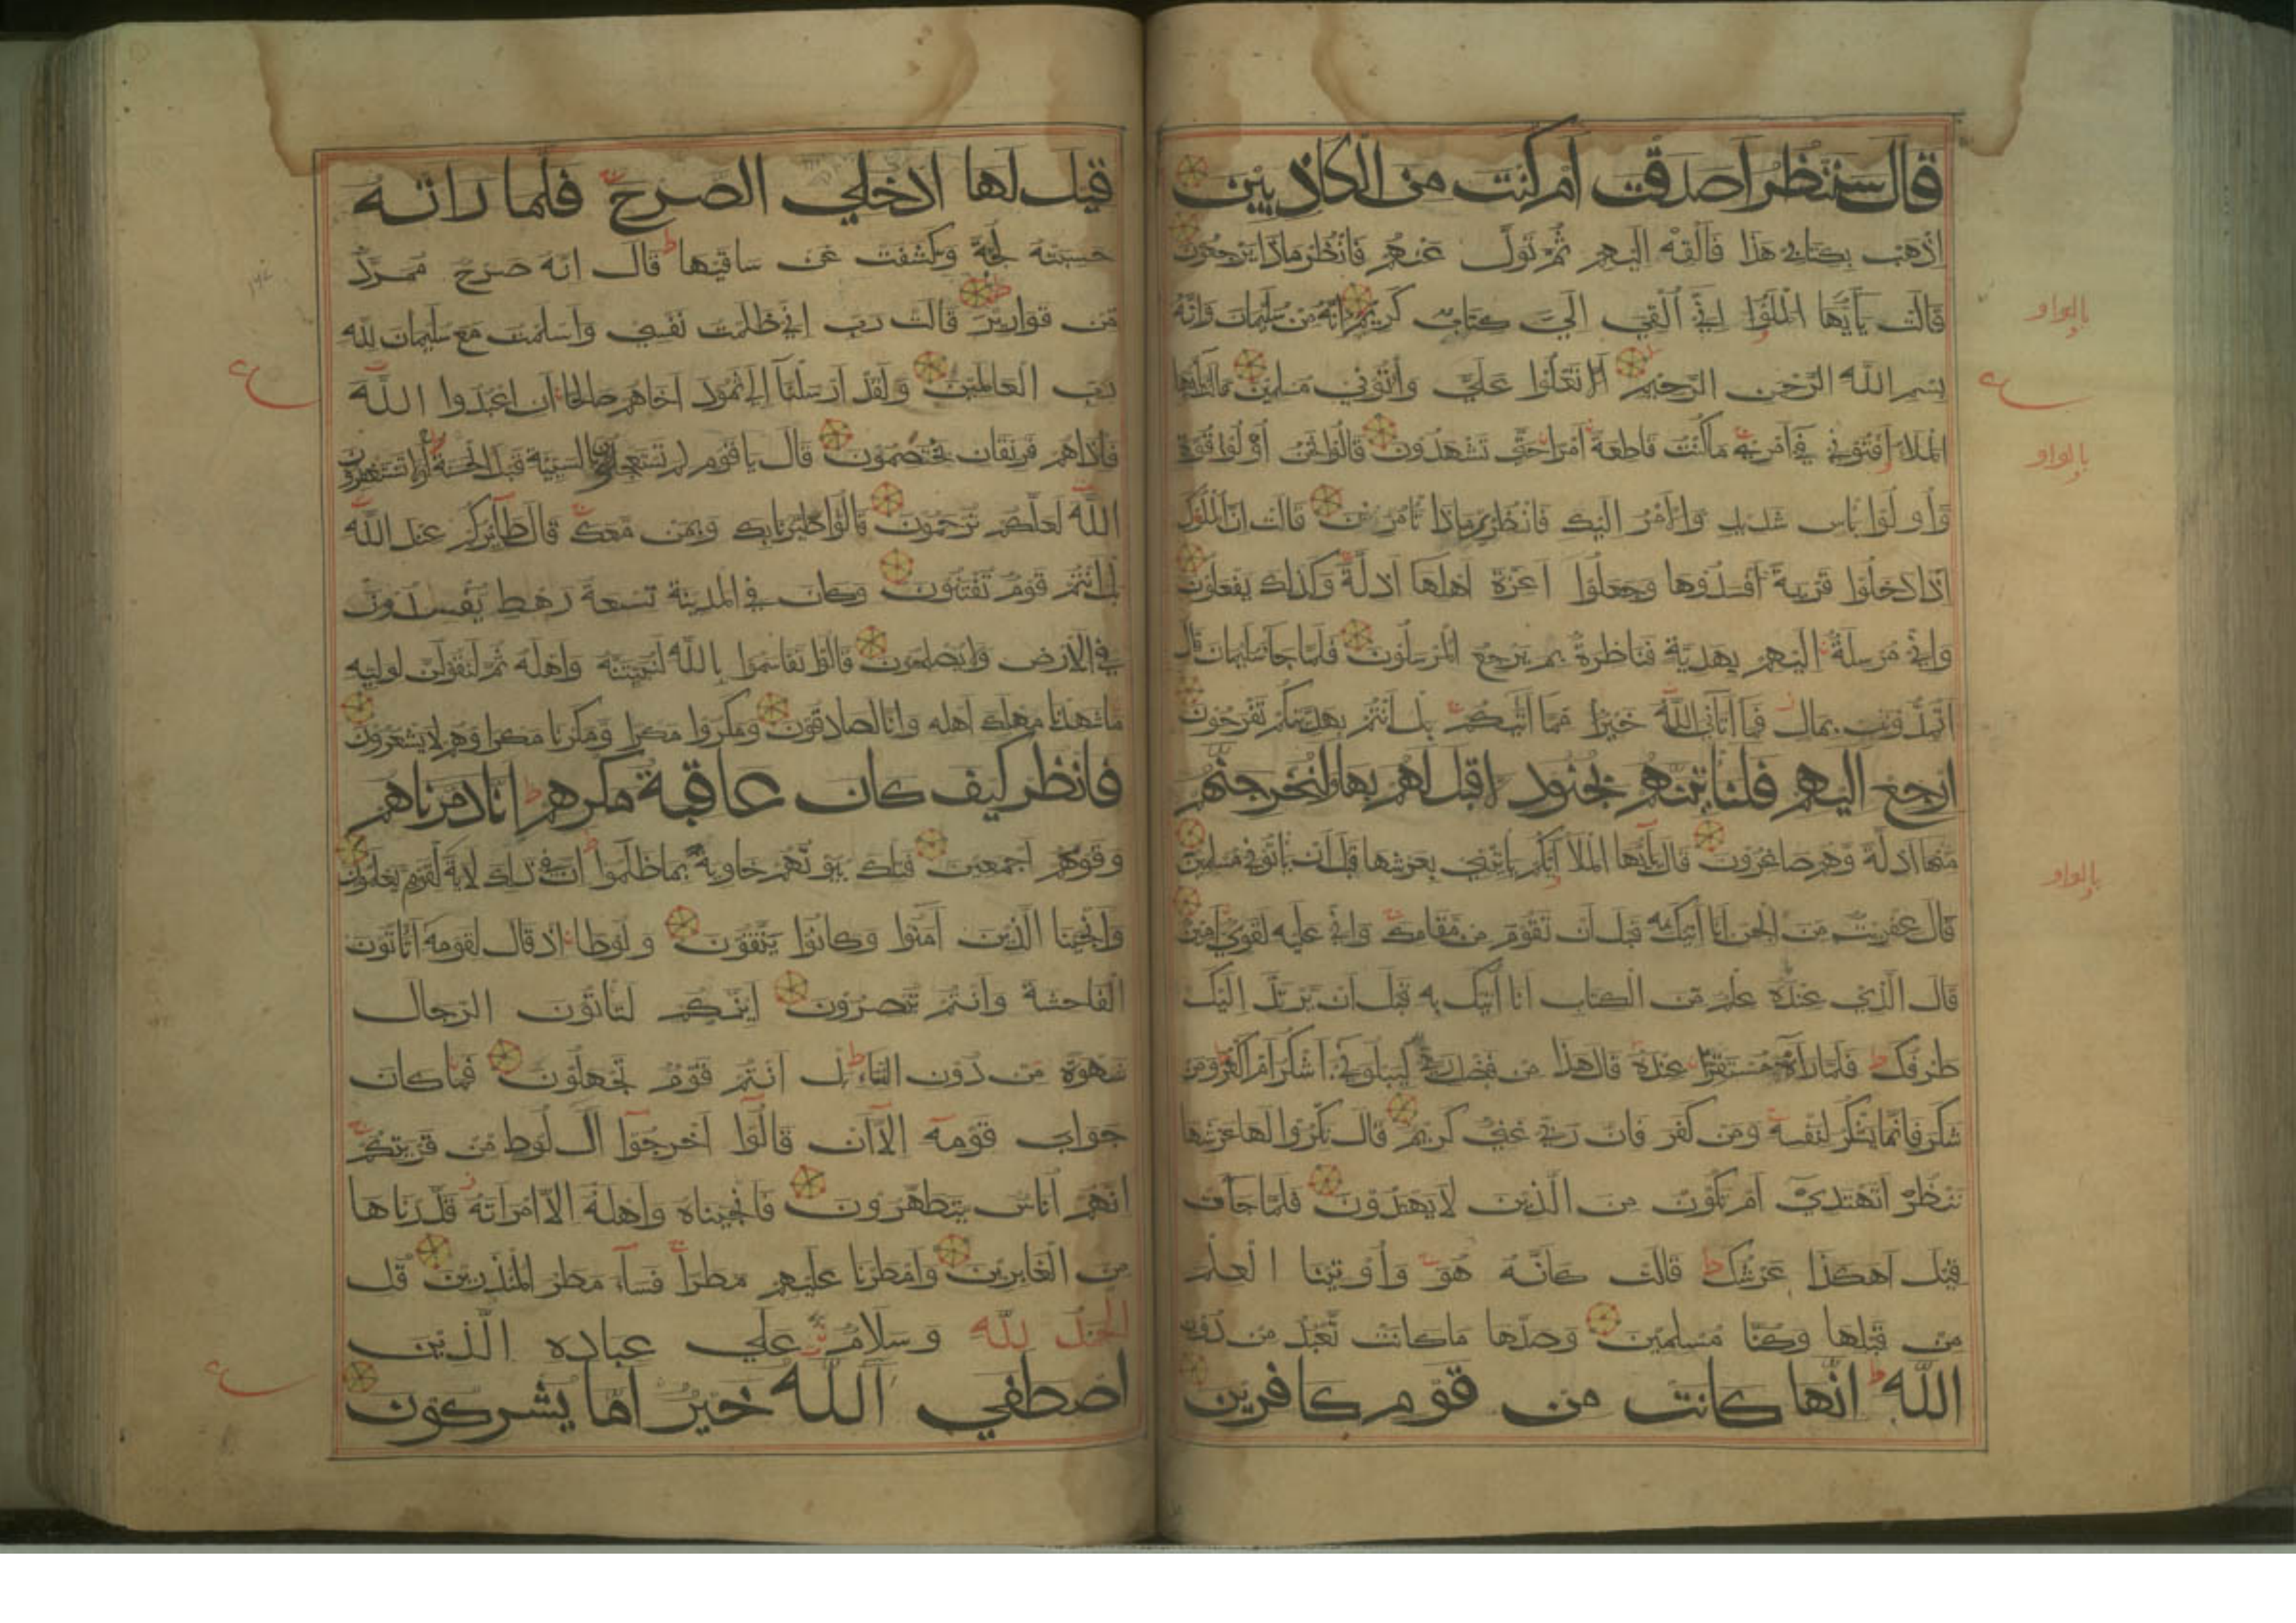 قال سننظر أصدقت أم كنت من الكاذبين
اذهب بكتابي هذا فألقه إليهم ثم تول عنهم فانظر ماذا يرجعون
قالت يأيها الملؤا إني ألقي إلي كتاب كريم إنه من سليمان وإنه
بسم الله الرحمن الرحيم ألا تعلوا علي وأتوني مسلمين قالت يأيها
الملاء أفتوني في أمري ما كنت قاطعة أمرا حتى تشهدون قالوا نحن أولوا قوة
وأولوا بأس شديد والأمر إليك فانظري ماذا تأمرين قالت إن الملوك
إذا دخلوا قرية أفسدوها وجعلوا أعزة أهلها أذلة وكذلك يفعلون
وإني مرسلة إليهم بهدية فناظرة بم يرجع المرسلون فلما جاء سليمان قال
أتمدونن بمال فما آتاني الله خير مما آتيكم بل أنتم بهديتكم تفرحون
ارجع إليهم فلنأتينهم بجنود لا قبل لهم بها ولنخرجنهم
منها أذلة وهم صاغرون قال يأيها الملأ أيكم يأتيني بعرشها قبل أن يأتوني مسلمين
قال عفريت من الجن أنا آتيك به قبل أن تقوم من مقامك وإني عليه لقوي أمين
قال الذي عنده علم من الكتاب أنا آتيك به قبل أن يرتد إليك
طرفك فلما رآه مستقرا عنده قال هذا من فضل ربي ليبلوني أأشكر أم أكفر ومن
شكر فإنما يشكر لنفسه ومن كفر فإن ربي غني كريم قال نكروا لها عرشها
ننظر أتهتدي أم تكون من الذين لا يهتدون فلما جاءت
قيل أهكذا عرشك قالت كأنه هو وأوتينا العلم
من قبلها وكنا مسلمين وصدها ما كانت تعبد من دون
الله إنها كانت من قوم كافرين
بالواو
ع
بالواو
بالواو
قيل لها ادخلي الصرح فلما رأته
حسبته لجة وكشفت عن ساقيها قال إنه صرح ممرد
من قوارير قالت رب إني ظلمت نفسي وأسلمت مع سليمان لله
رب العالمين ولقد أرسلنا إلى ثمود أخاهم صالحا أن اعبدوا الله
فإذا هم فريقان يختصمون قال يا قوم لم تستعجلون بالسيئة قبل الحسنة لولا تستغفرون
الله لعلكم ترحمون قالوا اطيرنا بك وبمن معك قال طائركم عند الله
بل أنتم قوم تفتنون وكان في المدينة تسعة رهط يفسدون
في الأرض ولا يصلحون قالوا تقاسموا بالله لنبيتنه وأهله ثم لنقولن لوليه
ما شهدنا مهلك أهله وإنا لصادقون ومكروا مكرا ومكرنا مكرا وهم لا يشعرون
فانظر كيف كان عاقبة مكرهم أنا دمرناهم
وقومهم أجمعين فتلك بيوتهم خاوية بما ظلموا إن في ذلك لآية لقوم يعلمون
وأنجينا الذين آمنوا وكانوا يتقون ولوطا إذ قال لقومه أتأتون
الفاحشة وأنتم تبصرون أئنكم لتأتون الرجال
شهوة من دون النساء بل أنتم قوم تجهلون فما كان
جواب قومه إلا أن قالوا أخرجوا آل لوط من قريتكم
إنهم أناس يتطهرون فأنجيناه وأهله إلا امرأته قدرناها
من الغابرين وأمطرنا عليهم مطرا فساء مطر المنذرين قل
الحمد لله وسلام على عباده الذين
اصطفي آلله خير أما يشركون
ع
ع